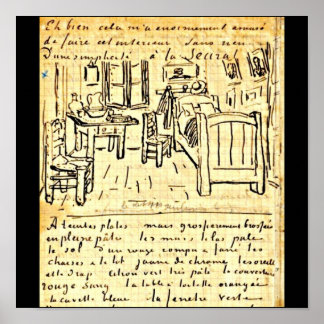 Eh bien cela m'a énormément amusé
de faire cet intérieur Sans rien
D'une simplicité à la Seurat
A teintes plates mais grossièrement brossées
en pleine pâte les murs lilas pale
le sol d'un rouge rompu & fané les
chaises & le lit jaune de chrome les oreillers
et le drap citron vert très pâle la couverture
rouge sang la table à toilette orangée
la cuvette bleue la fenêtre verte